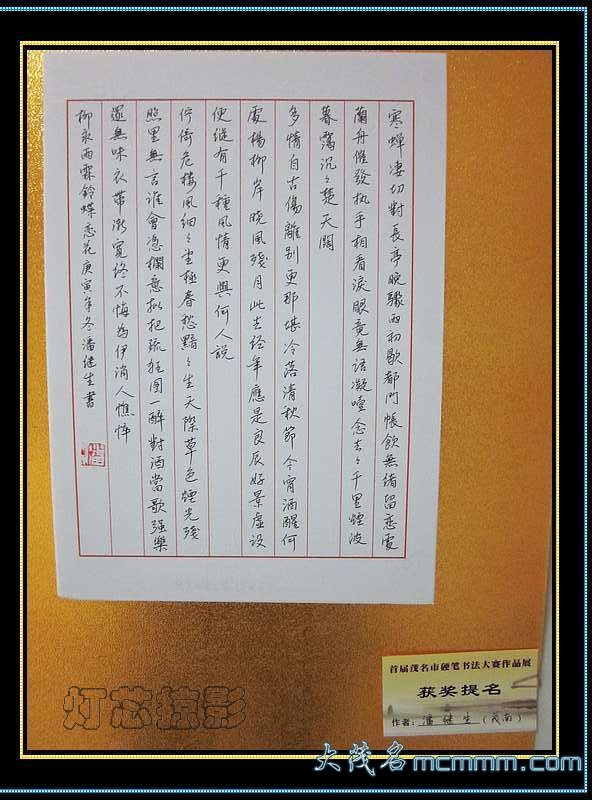 寒蟬淒切對長亭晚驟雨初歇都門帳飲無緒留戀處
蘭舟催發执手相看淚眼竟無語凝噎念去々千里煙波
暮靄沉々楚天闊
多情自古傷離别更那堪冷落清秋節今宵酒醒何
處楊柳岸晓風殘月此去经年應是良辰好景虚設
便縱有千種風情更與何人說
佇倚危樓風细々望極春愁黯々生天際草色煙光殘
照里無言谁會憑欄意拟把疏狂圖一醉對酒當歌强樂
還無味衣帶漸寬终不悔为伊消人憔悴
柳永雨霖鈴蝶恋花庚寅年冬潘继生書
首届茂名市硬笔书法大赛作品展
获奖提名
作者:潘继生(茂南)
灯芯掠影
大茂名mcmmm.com